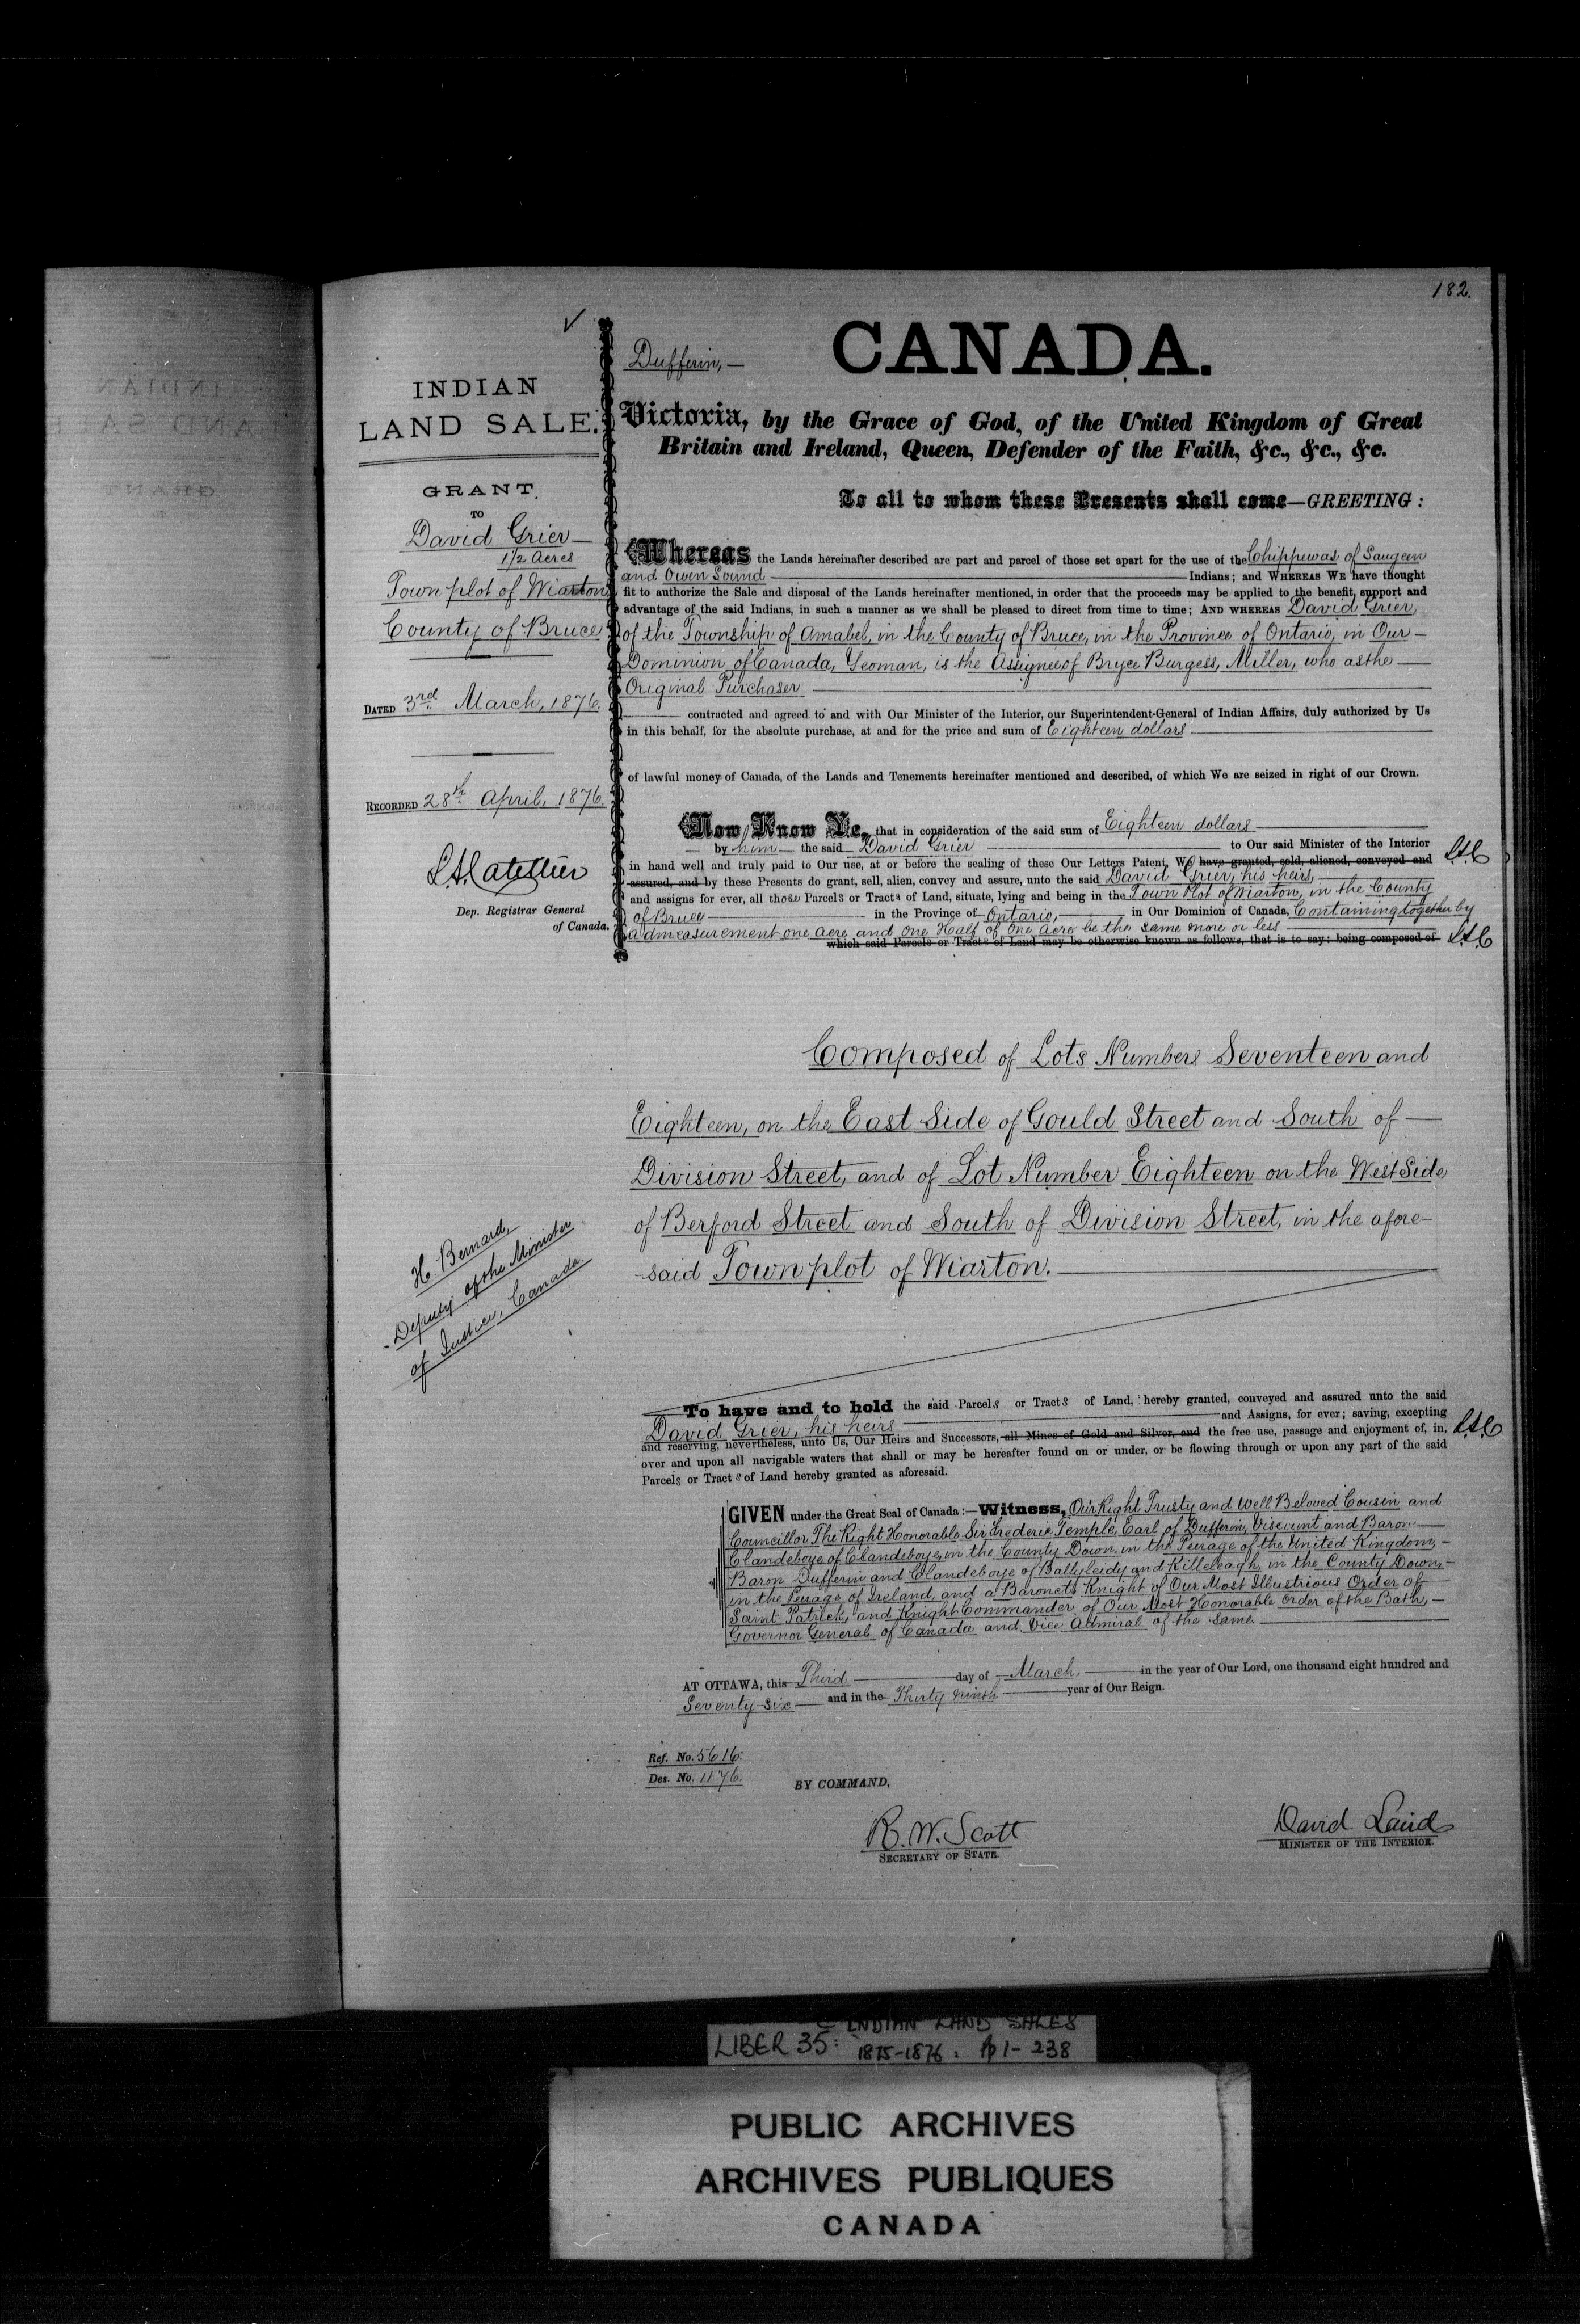 182.
CANADA.
Dufferin,
INDIAN
LAND SALE.
GRANT
TO
David Grier
1 1/2 Acres
Town plot of Wiarton
County of Bruce
DATED 3rd March, 1876.
RECORDED 28th April, 1876.
Dep. Registrar General
of Canada.
H. Bernard,
Deputy of the Minister
of Justice, Canada.
Victoria, by the Grace of God, of the United Kingdom of Great
Britain and Ireland, Queen, Defender of the Faith, &c., &c., &c.
To all to whom these Presents shall come—GREETING:
Whereas the Lands hereinafter described are part and parcel of those set apart for the use of the Chippewas of Saugeen
and Owen Sound Indians; and WHEREAS WE have thought
fit to authorize the Sale and disposal of the Lands hereinafter mentioned, in order that the proceeds may be applied to the benefit, support and
advantage of the said Indians, in such a manner as we shall be pleased to direct from time to time; AND WHEREAS David Grier,
of the Township of Amabel, in the County of Bruce, in the Province of Ontario, in Our
Dominion of Canada, Yeoman, is the Assignee of Bryce Burgess, Miller, who as the
Original Purchaser
contracted and agreed to and with Our Minister of the Interior, our Superintendent-General of Indian Affairs, duly authorized by Us
in this behalf, for the absolute purchase, at and for the price and sum of Eighteen dollars
of lawful money of Canada, of the Lands and Tenements hereinafter mentioned and described, of which We are seized in right of our Crown.
Now Know Ye, that in consideration of the said sum of Eighteen dollars
by him the said David Grier to Our said Minister of the Interior
in hand well and truly paid to Our use, at or before the sealing of these Our Letters Patent, We have granted, sold, aliened, conveyed and
assured, and by these Presents do grant, sell, alien, convey and assure, unto the said David Grier, his heirs,
and assigns for ever, all those Parcels or Tracts of Land, situate, lying and being in the Town Plot of Wiarton, in the County
of Bruce in the Province of Ontario, in Our Dominion of Canada, Containing together by
admeasurement one acre and one Half of one Acre be the same more or less
which said Parcels or Tracts of Land may be otherwise known as follows, that is to say: being composed of
Composed of Lots Numbers Seventeen and
Eighteen, on the East Side of Gould Street and South of
Division Street, and of Lot Number Eighteen on the West Side
of Berford Street and South of Division Street, in the afore-
said Town plot of Wiarton.
To have and to hold the said Parcels or Tracts of Land, hereby granted, conveyed and assured unto the said
David Grier, his heirs and Assigns, for ever; saving, excepting
and reserving, nevertheless, unto Us, Our Heirs and Successors, all Mines of Gold and Silver, and the free use, passage and enjoyment of, in,
over and upon all navigable waters that shall or may be hereafter found on or under, or be flowing through or upon any part of the said
Parcels or Tracts of Land hereby granted as aforesaid.
GIVEN under the Great Seal of Canada:—Witness, Our Right Trusty and Well Beloved Cousin and
Councillor The Right Honorable Sir Frederic Temple, Earl of Dufferin, Viscount and Baron
Clandeboye of Clandeboye, in the County Down, in the Peerage of the United Kingdom,
Baron Dufferin and Clandeboye of Ballyleidy and Killeleagh, in the County Down,
in the Peerage of Ireland, and a Baronet, Knight of Our Most Illustrious Order of
Saint Patrick, and Knight Commander of Our Most Honorable Order of the Bath,
Governor General of Canada and Vice Admiral of the same
AT OTTAWA, this Third day of March in the year of Our Lord, one thousand eight hundred and
Seventy-six and in the Thirty ninth year of Our Reign.
Ref. No. 5616.
Des. No. 1176.
BY COMMAND,
R. W. Scott
SECRETARY OF STATE.
David Laird
MINISTER OF THE INTERIOR.
INDIAN LAND SALES
LIBER 35: 1875-1876: pp 1-238
PUBLIC ARCHIVES
ARCHIVES PUBLIQUES
CANADA